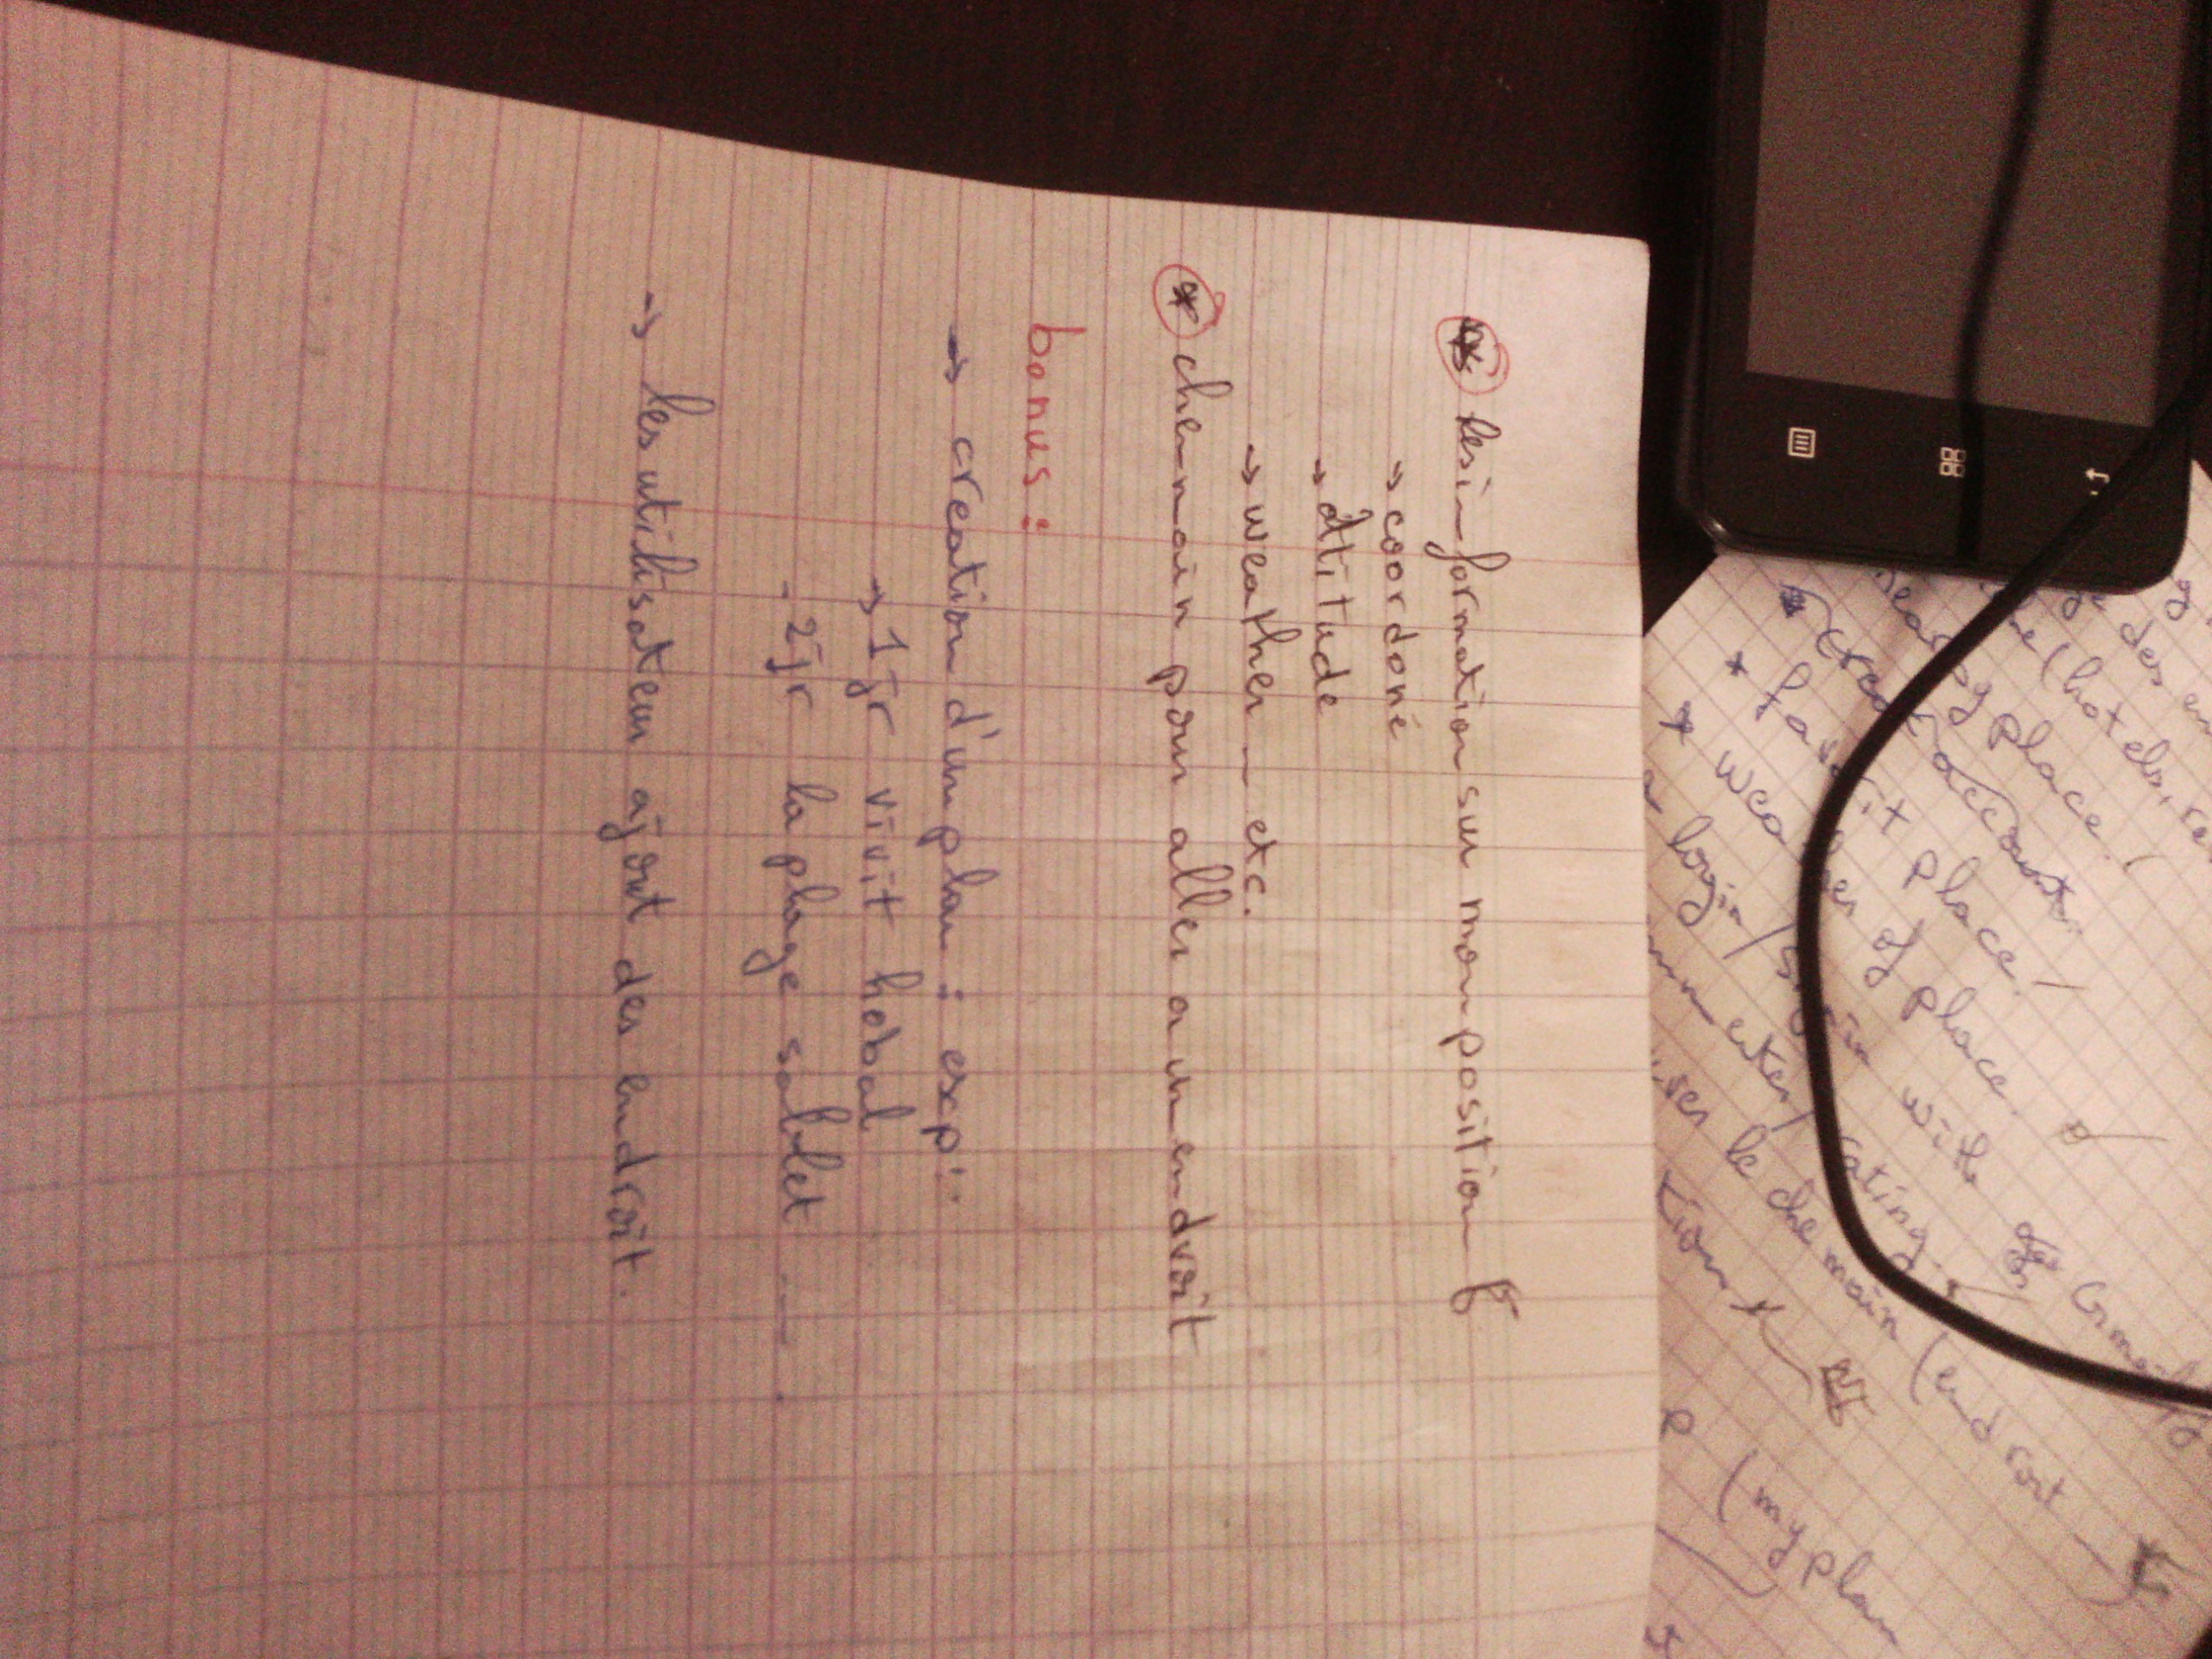 des en
(hotels, re
place!
creat account.
favorit place!
of place.
login / with Gmail
rating
le chemain (endroit
(my plan
les information sur mon position
→ coordoné
→ altitude
→ weather _ etc.
* chemain pour aller a un endroit
bonus :
→ creation d'un plan : exp:
→ 1jr vivit hobal
- 2jr la plage sablet ....
→ les utilisateur ajout des endroit.